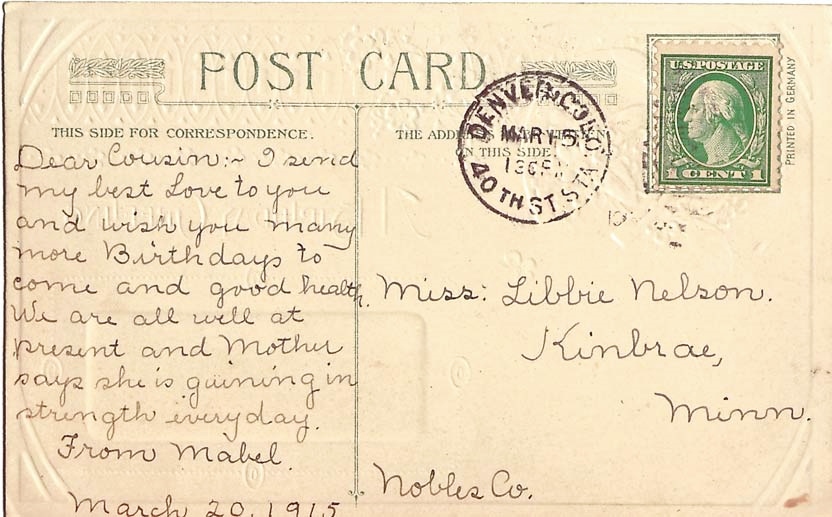 POST CARD
THIS SIDE FOR CORRESPONDENCE.
Dear Cousin:~ I send
my best Love to you
and wish you many
more Birthdays to
come and good health.
We are all well at
present and Mother
says she is gaining in
strength everyday.
From Mabel.
March 20, 1915
THE ADDRESS
ON THIS SIDE
DENVER, COLO.
MAR 15
40TH ST. STA.
U.S. POSTAGE
1 CENT 1
PRINTED IN GERMANY
Miss: Libbie Nelson.
Kinbrae,
Minn.
Nobles Co.